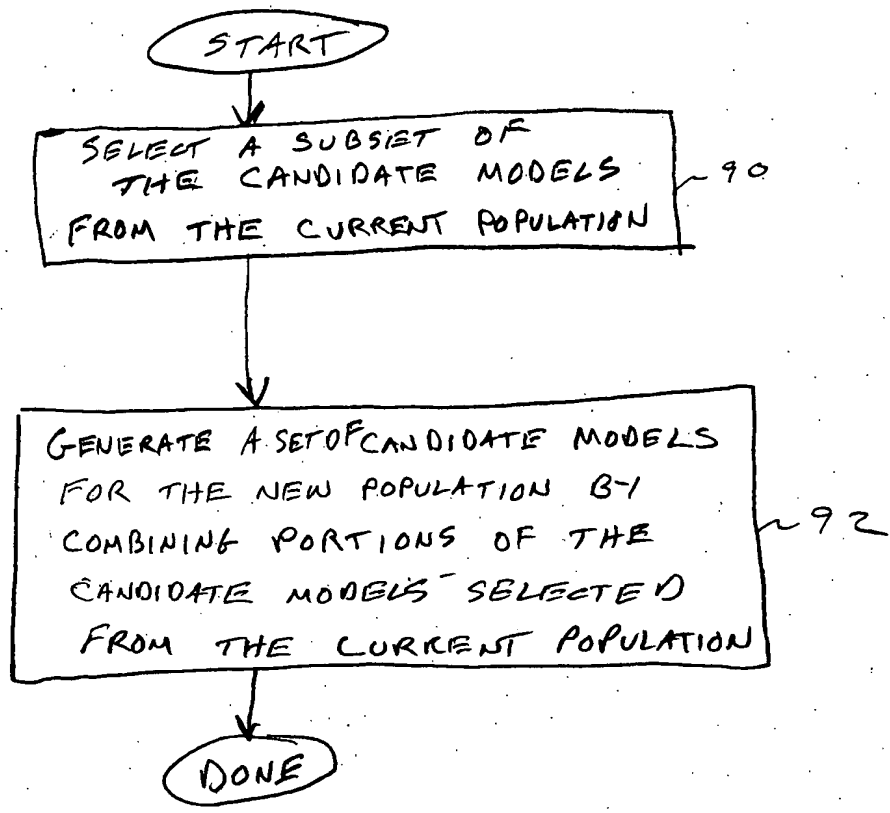 START
SELECT A SUBSET OF
THE CANDIDATE MODELS
FROM THE CURRENT POPULATION
90
GENERATE A SET OF CANDIDATE MODELS
FOR THE NEW POPULATION BY
COMBINING PORTIONS OF THE
CANDIDATE MODELS SELECTED
FROM THE CURRENT POPULATION
92
DONE